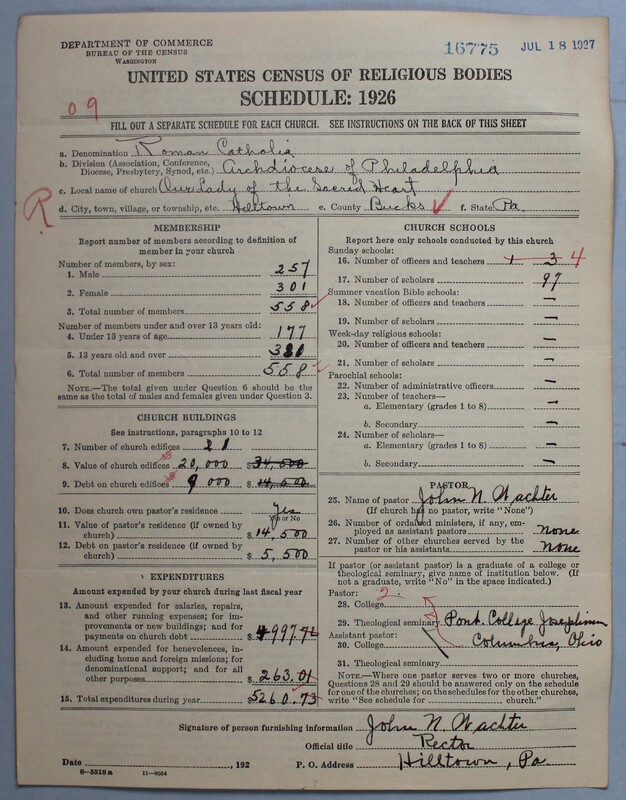 DEPARTMENT OF COMMERCE
BUREAU OF THE CENSUS
WASHINGTON
16775 JUL 18 1927
UNITED STATES CENSUS OF RELIGIOUS BODIES
SCHEDULE: 1926
09
FILL OUT A SEPARATE SCHEDULE FOR EACH CHURCH. SEE INSTRUCTIONS ON THE BACK OF THIS SHEET
a. Denomination Roman Catholic
b. Division (Association, Conference, Diocese, Presbytery, Synod, etc.) Archdiocese of Philadelphia
c. Local name of church Our Lady of the Sacred Heart
R
d. City, town, village, or township, etc. Hilltown e. County Bucks f. State Pa.
MEMBERSHIP
Report number of members according to definition of
member in your church
Number of members, by sex:
1. Male 257
2. Female 301
3. Total number of members 558
Number of members under and over 13 years old:
4. Under 13 years of age 177
5. 13 years old and over 381
6. Total number of members 558
NOTE.—The total given under Question 6 should be
the same as the total of males and females given under Question 3.
CHURCH BUILDINGS
See instructions, paragraphs 10 to 12
7. Number of church edifices 1
8. Value of church edifices $20,000 $34,500
9. Debt on church edifices $9 000 $14,500
10. Does church own pastor's residence? Yes
Yes or No
11. Value of pastor's residence (if owned by
church) $14,500
12. Debt on pastor's residence (if owned by
church) $5,500
EXPENDITURES
Amount expended by your church during last fiscal year
13. Amount expended for salaries, repairs,
and other running expenses; for im-
provements or new buildings; and for
payments on church debt $4997.72
14. Amount expended for benevolences, in-
cluding home and foreign missions; for
denominational support; and for all
other purposes $263.01
15. Total expenditures during year $5260.73
CHURCH SCHOOLS
Report here only schools conducted by this church
Sunday schools:
16. Number of officers and teachers 1 3 4
17. Number of scholars 97
Summer vacation Bible schools:
18. Number of officers and teachers —
19. Number of scholars —
Week-day religious schools:
20. Number of officers and teachers —
21. Number of scholars —
Parochial schools:
22. Number of administrative officers —
23. Number of teachers—
a. Elementary (grades 1 to 8) —
b. Secondary —
24. Number of scholars—
a. Elementary (grades 1 to 8) —
b. Secondary —
PASTOR
25. Name of pastor John N. Wachter
(If church had no pastor, write "None")
26. Number of ordained ministers, if any, em-
ployed as assistant pastors none
27. Number of other churches served by the
pastor or his assistants none
If pastor (or assistant pastor) is a graduate of a college or
theological seminary, give name of institution below. (If
not a graduate, write "No" in the space indicated.)
Pastor: 2.
28. College
29. Theological seminary Pont. College Josephinum
Assistant pastor: Columbus, Ohio
30. College
31. Theological seminary
NOTE.—Where one pastor serves two or more churches,
Questions 28 and 29 should be answered only on the schedule
for one of the churches; on the schedules for the other churches,
write "See schedule for church."
Signature of person furnishing information John N. Wachter
Official title Rector
Date , 192 P. O. Address Hilltown, Pa.
8—5518a 11—9024